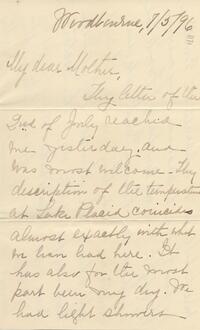 Woodbourne, 7/5/96
My dear Mother,
Thy letter of the
2nd of July reached
me yesterday, and
was most welcome. Thy
description of the temperature
at Lake Placid coincides
almost exactly with what
we have had here. It
has also for the most
part been very dry. We
had light showers